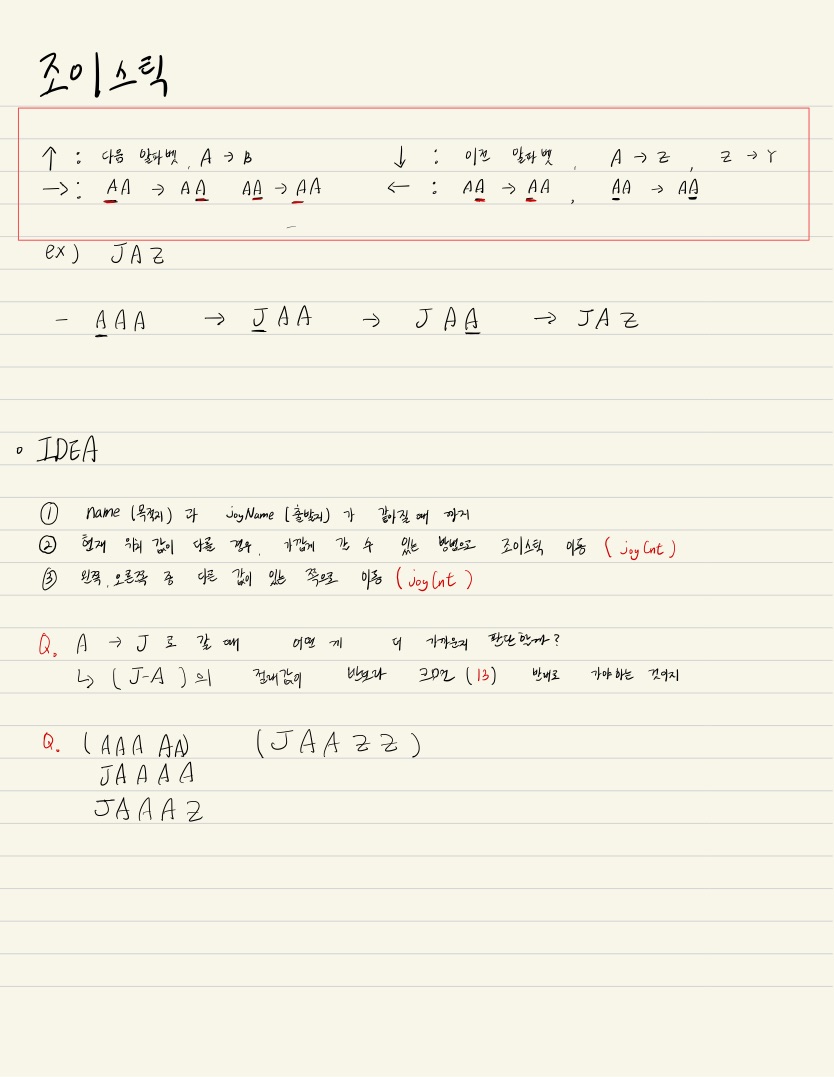 조이스틱
↑ : 다음 알파벳, A → B ↓ : 이전 알파벳, A → Z, Z → Y
→ : AA → AA AA → AA ← : AA → AA, AA → AA
ex) JAZ
- AAA → JAA → JAA → JAZ
◦ IDEA
① name (목적지) 과 joyName (출발지) 가 같아질 때 까지
② 현재 위치 값이 다를 경우, 가깝게 갈 수 있는 방법으로 조이스틱 이동 (joyCnt)
③ 왼쪽, 오른쪽 중 다른 값이 있는 쪽으로 이동 (joyCnt)
Q. A → J 로 갈 때 어떤 게 더 가까운지 판단할까?
↳ (J-A)의 절대값이 반보다 크면 (13) 반대로 가야하는 것이지
Q. (AAAAA) (JAAZZ)
JAAAA
JAAAZ